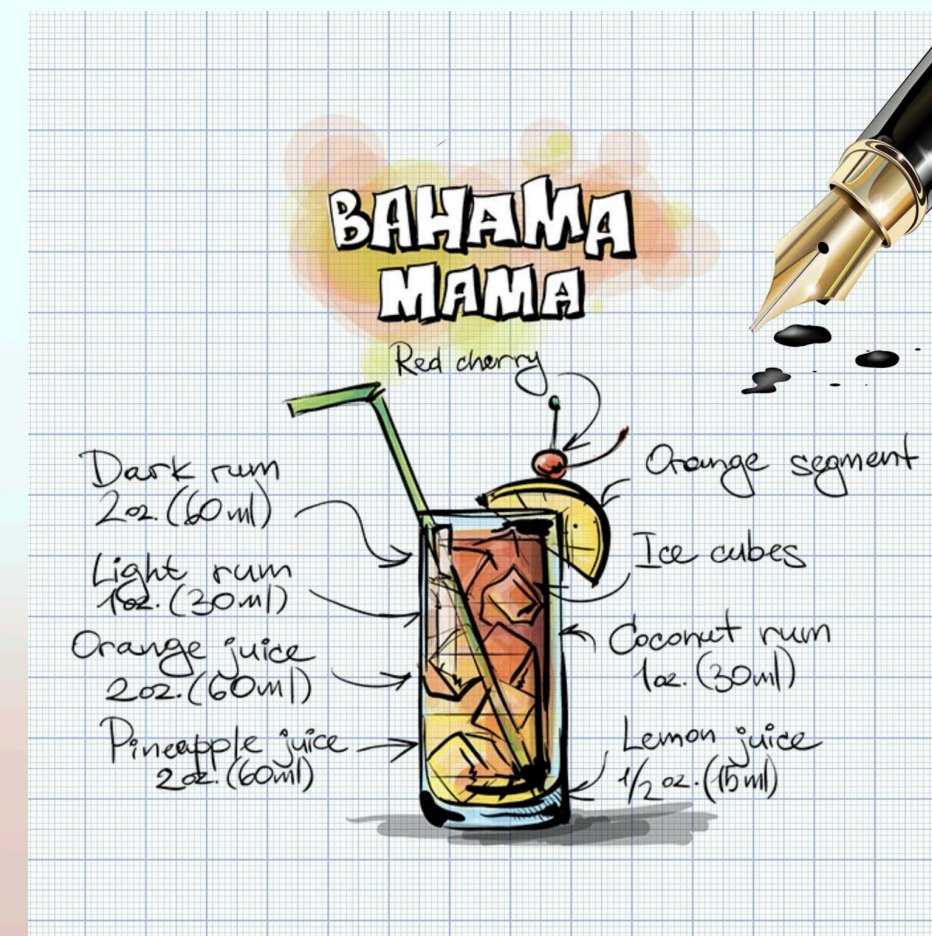 BAHAMA
MAMA
Red cherry
Dark rum
2oz. (60ml)
Light rum
1oz. (30ml)
Orange juice
2oz. (60ml)
Pineapple juice
2oz. (60ml)
Orange segment
Ice cubes
Coconut rum
1oz. (30ml)
Lemon juice
1/2 oz. (15ml)